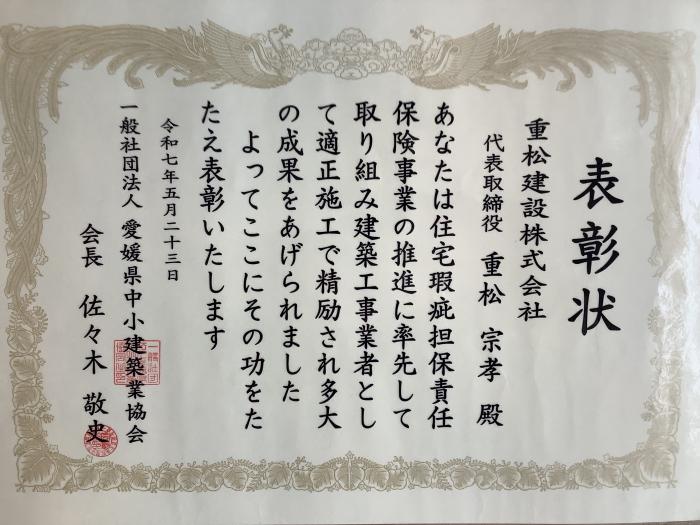 表彰状
重松建設株式会社
代表取締役 重松 宗孝 殿
あなたは住宅瑕疵担保責任
保険事業の推進に率先して
取り組み建築工事業者とし
て適正施工で精励され多大
の成果をあげられました
よってここにその功をた
たえ表彰いたします
令和七年五月二十三日
一般社団法人 愛媛県中小建築業協会
会長 佐々木 敬史